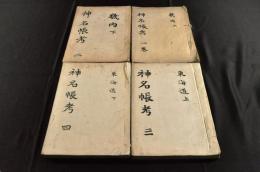 畿内上
神名帳考 一
畿内下
神名帳考 二
東海道上
神名帳考 三
東海道下
神名帳考 四